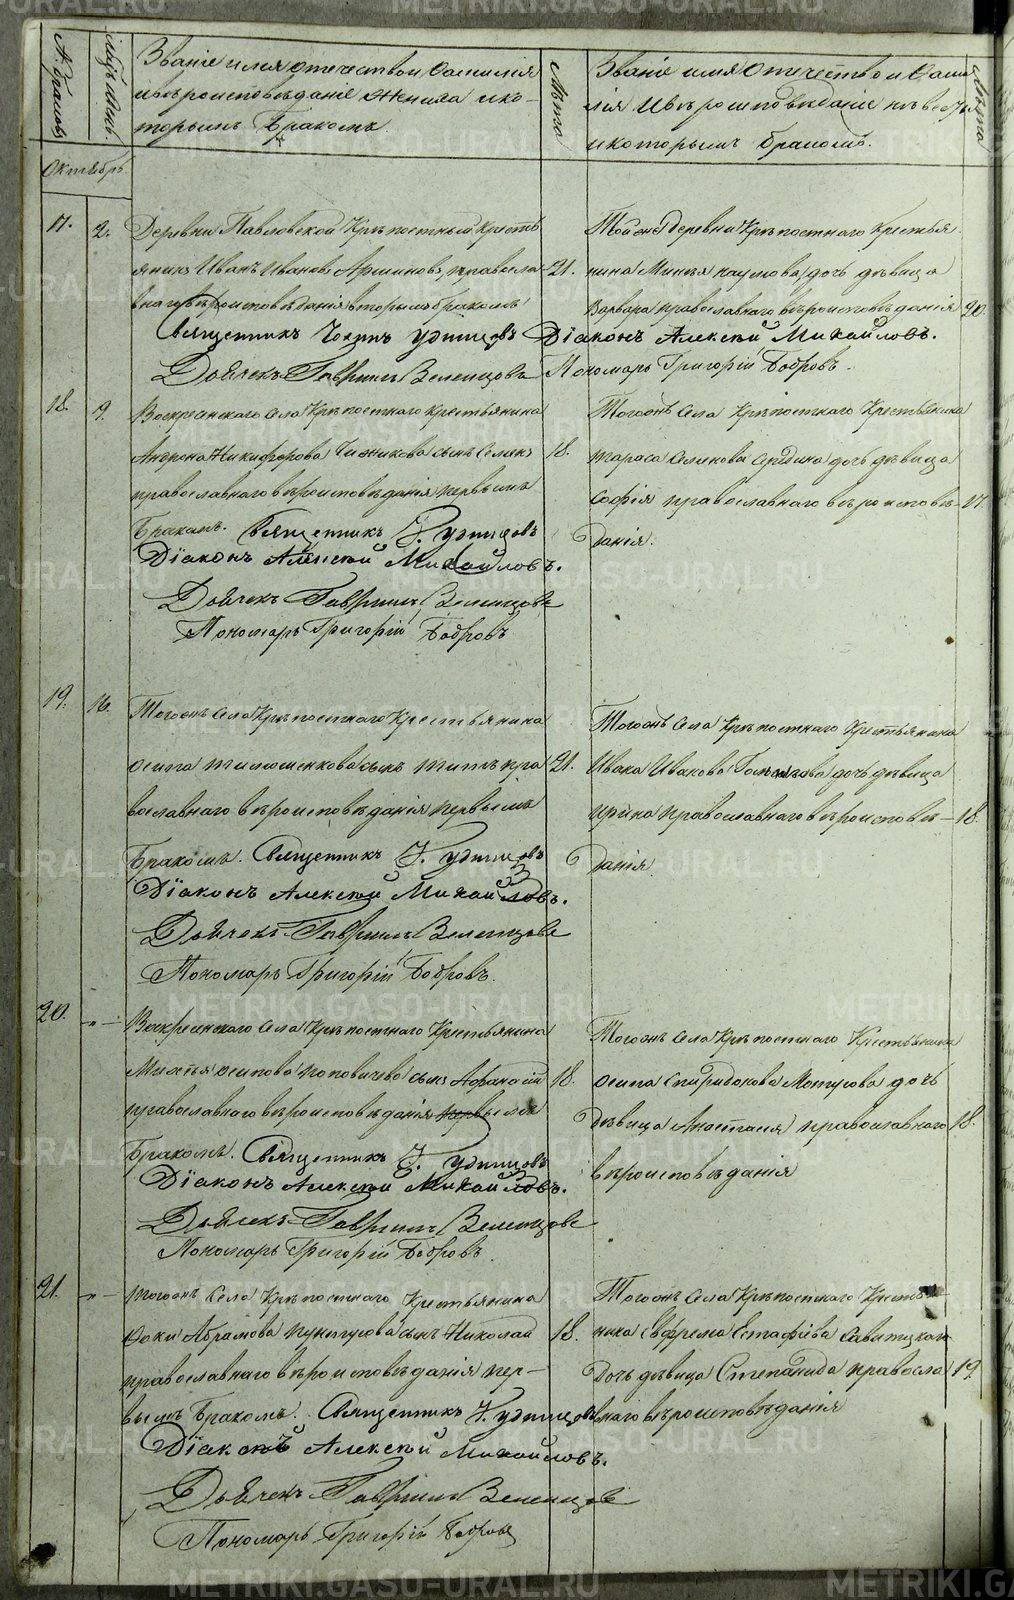 № браковъ
Мѣсяцъ и день
Званіе имя отечество и Фамилія
и вѣроисповѣданіе жениха и ко-
торымъ бракомъ.
Лѣта
Званіе имя Отечество и Фами
лія И вѣроисповѣданіе невесты
и которымъ бракомъ.
Лѣта
Октябрь
17. 2. Деревни Павловской Крѣпостный Кресть
янинъ Иванъ Ивановъ православ 21.
внаго вѣроисповѣданія вторымъ бракомъ
Священникъ Іоаннъ Удинцовъ
Дьячекъ Гавриилъ Зеленцовъ
Той онъ Деревни Крѣпостнаго крестья
нина Минея Наумова дочь дѣвица
Варвара православнаго вѣроисповѣданія 20.
Діаконъ Алексѣй Михайловъ.
Пономарь Григорій Бобровъ.
18. 9. Воскресенскаго села Крѣпостнаго крестьянина
Андрона Никифорова Чижикова сынъ Семенъ 18.
православнаго вѣроисповѣданія первымъ
Бракомъ. Священникъ І. Удинцовъ
Діаконъ Алексѣй Михайловъ.
Дьячекъ Гавриилъ Зеленцовъ
Пономарь Григорій Бобровъ
Тогоонъ Села Крѣпостнаго Крестьянина
Тараса Семенова дочь дѣвица
Софія православнаго вѣроисповѣ- 17.
данія.
19. 16. Тогоонъ Села Крѣпостнаго Крестьянина
Осипа Тимошенкова сынъ Титъ пра 21.
вославнаго вѣроисповѣданія первымъ
Бракомъ. Священникъ І. Удинцовъ
Діаконъ Алексѣй Михайловъ.
Дьячекъ Гавриилъ Зеленцовъ
Пономарь Григорій Бобровъ.
Тогоонъ Села Крѣпостнаго Крестьянина
Ивана Иванова дочь дѣвица
Ирина православнаго вѣроисповѣ- 18.
данія
20. -"- Воскресенскаго Села Крѣпостнаго Крестьянина
Осипова Поповичева сынъ Афанасій 18.
православнаго вѣроисповѣданія первымъ
Бракомъ. Священникъ І. Удинцовъ
Діаконъ Алексѣй Михайловъ.
Дьячекъ Гавриилъ Зеленцовъ
Пономарь Григорій Бобровъ.
Тогоонъ Села Крѣпостнаго Крестьянина
Осипа Спиридонова дочь
дѣвица Анастасія православнаго 18.
вѣроисповѣданія
21. -"- Тогоонъ Села Крѣпостнаго Крестьянина
Фоки Абрамова сынъ Николай 18.
православнаго вѣроисповѣданія пер-
вымъ Бракомъ. Священникъ І. Удинцовъ
Діаконъ Алексѣй Михайловъ.
Дьячекъ Гавриилъ Зеленцовъ
Пономарь Григорій Бобровъ
Тогоонъ Села Крѣпостнаго Крестья
нина Ефрема Естафіева
Дочь дѣвица Степанида правосла 19.
внаго вѣроисповѣданія
METRIKI.GASO-URAL.RU